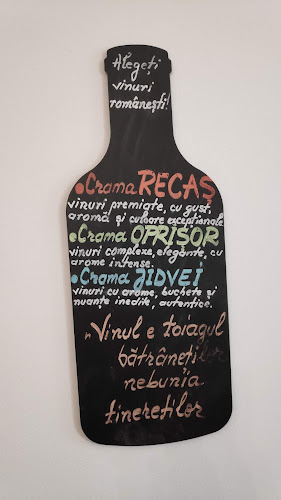 Alegeți
vinuri
românești!
• Crama RECAȘ
vinuri premiate, cu gust,
aromă și culoare excepționale
• Crama OPRIȘOR
vinuri complexe, elegante, cu
arome intense.
• Crama JIDVEI
vinuri cu arome, buchete și
nuanțe inedite, autentice.
„Vinul e toiagul
bătrâneților
nebunia
tinereților